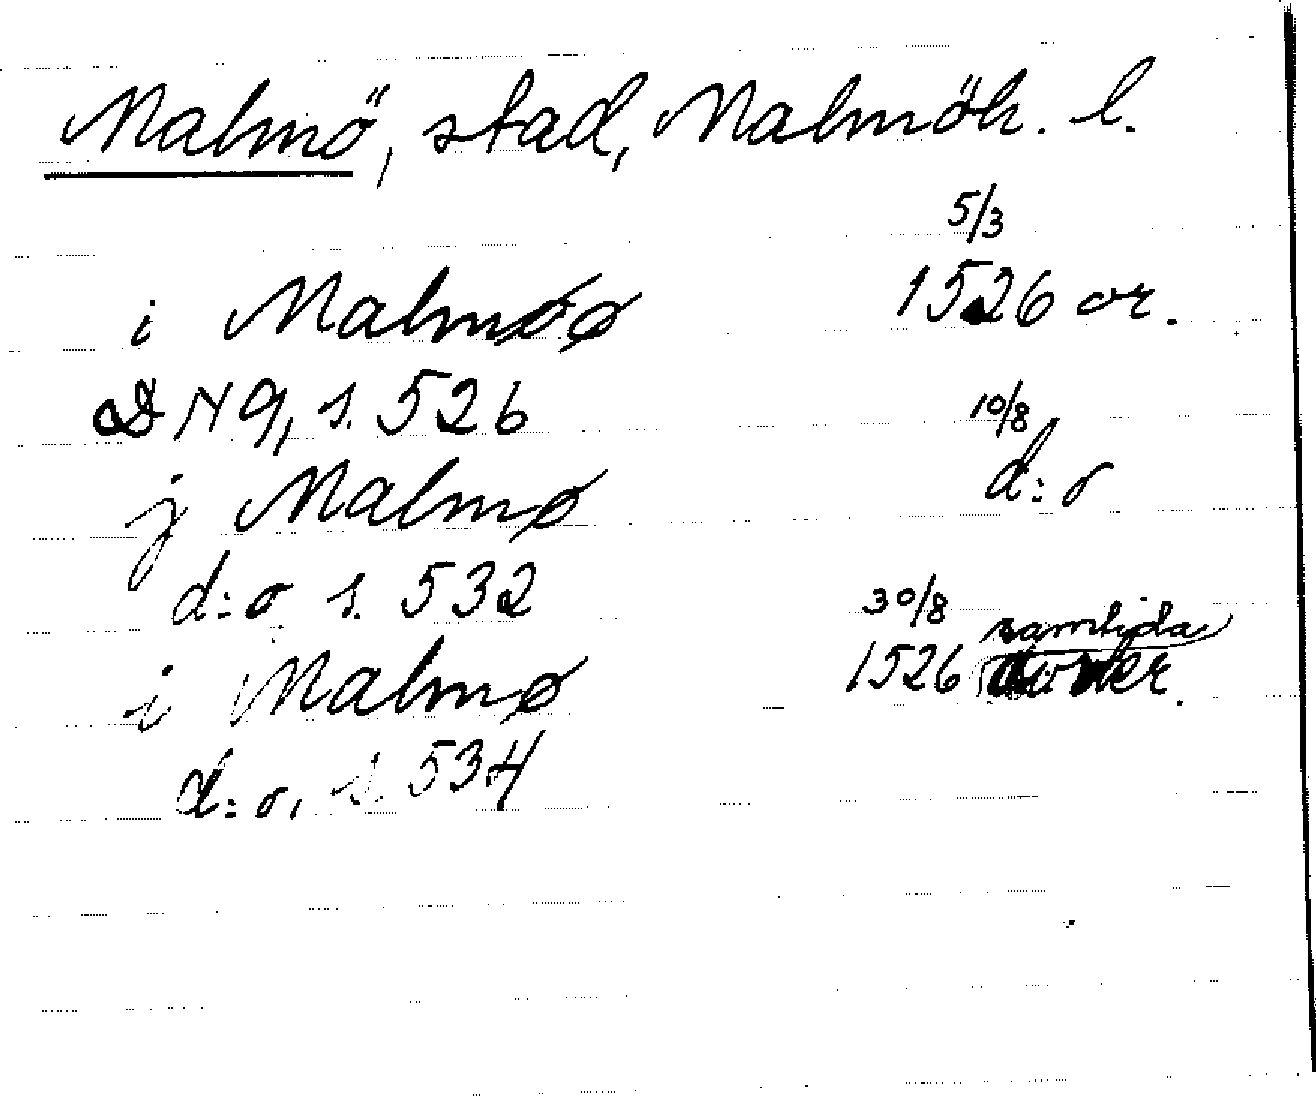 Malmö, stad, Malmöh. l.
5/3
i Malmøø 1526 or.
DN 9, s. 526
10/8
j Malmø d:o
d:o s. 532
30/8
samtida
i Malmø 1526 avskr.
d:o, s. 534